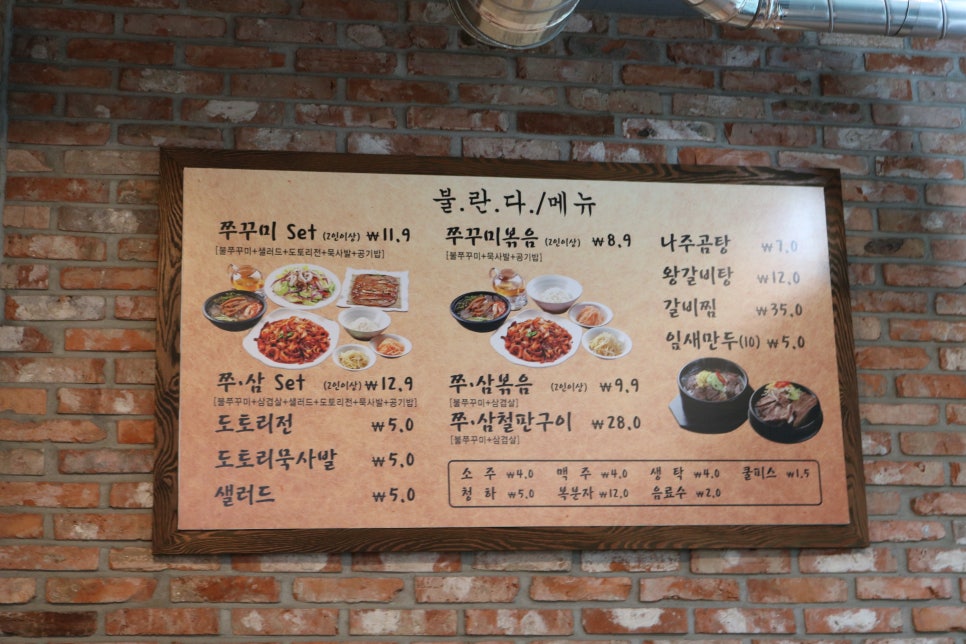 불.란.다./메뉴
쭈꾸미 Set (2인이상) ₩11.9
[불쭈꾸미+샐러드+도토리전+묵사발+공기밥]
쭈·삼 Set (2인이상) ₩12.9
[불쭈꾸미+삼겹살+샐러드+도토리전+묵사발+공기밥]
도토리전 ₩5.0
도토리묵사발 ₩5.0
샐러드 ₩5.0
쭈꾸미볶음 (2인이상) ₩8.9
[불쭈꾸미+묵사발+공기밥]
쭈·삼볶음 (2인이상) ₩9.9
[불쭈꾸미+삼겹살]
쭈·삼철판구이 ₩28.0
[불쭈꾸미+삼겹살]
나주곰탕 ₩7.0
왕갈비탕 ₩12.0
갈비찜 ₩35.0
임새만두(10) ₩5.0
소 주 ₩4.0 맥 주 ₩4.0 생 탁 ₩4.0 쿨피스 ₩1.5
청 하 ₩5.0 복분자 ₩12.0 음료수 ₩2.0